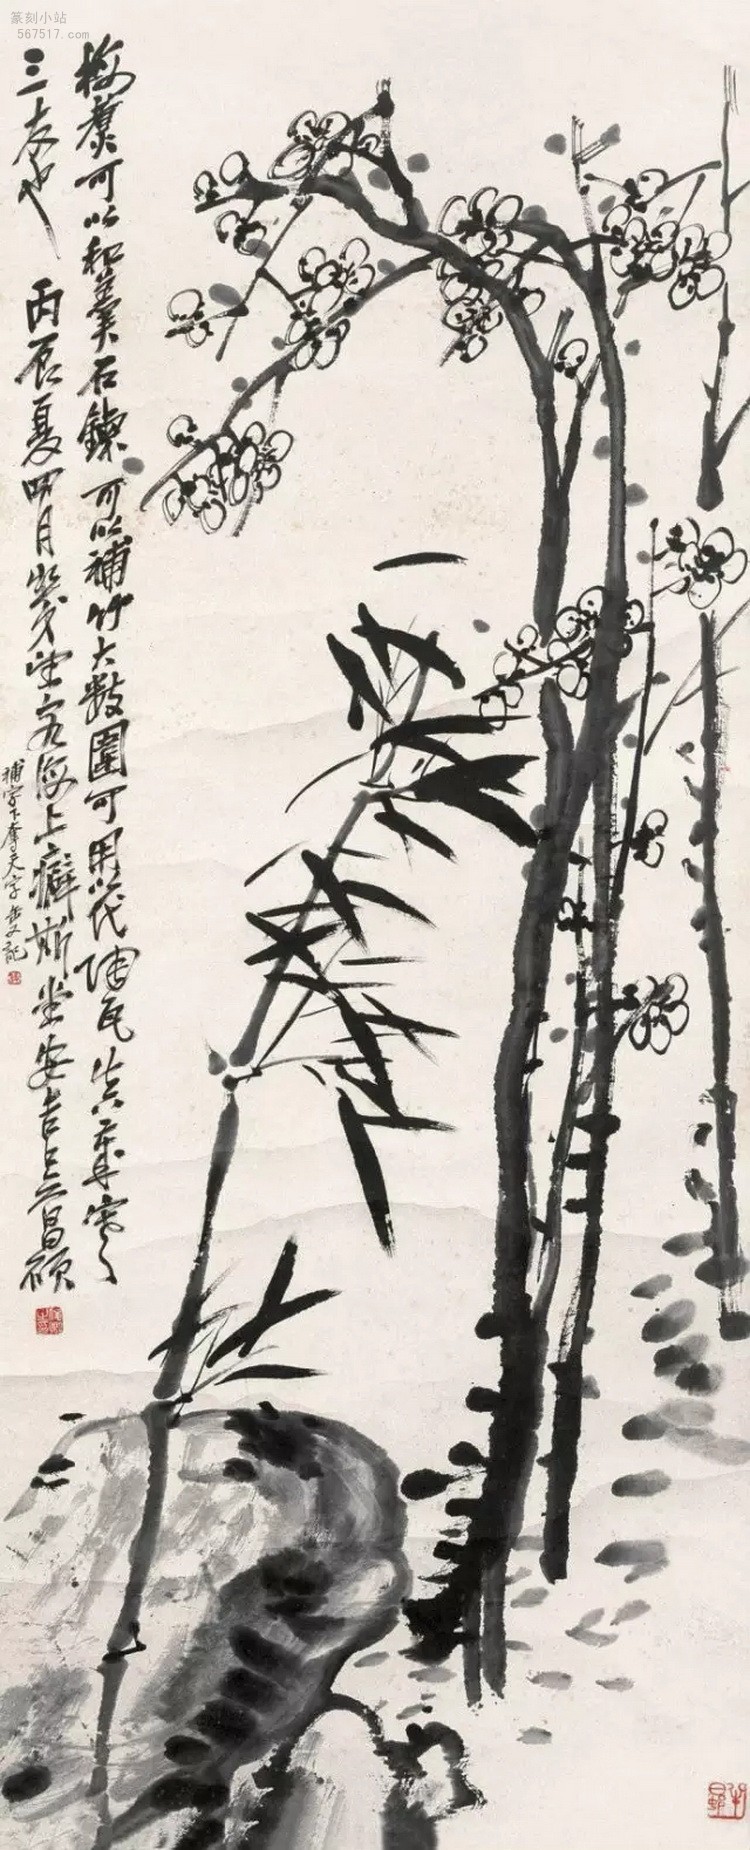 篆刻小站
567517.com
梅羹可以和羹石鍊可以補竹大數圍可用以代陶瓦此真歲寒
三友也 丙辰夏四月幾望客海上癖斯堂安吉吳昌碩
補字下奪天字岳又記